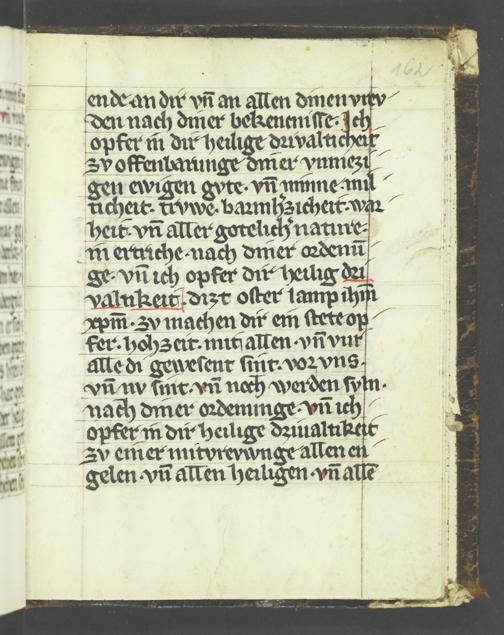 162
ende an dir vn̄ an allen dinen vrev
den nach diner bekenenisse. Ich
opfer in dir heilige drivalticheit
zv offenbarunge diner vnmezi
gen ewigen gvte. vn̄ minne. mil
ticheit. trvwe. barmh̄zicheit. war
heit. vn̄ aller gotelich̄ nature.
in ertriche. nach diner ordenū
ge. vn̄ ich opfer dir heilig dri
valtikeit dizt oster lamp ihm̄
xpm̄. zv machen dir ein stete op
fer. hohzeit. mit allen. vn̄ vur
alle di gewesent sint. vor vns.
vn̄ nv sint. vn̄ noch werden syn.
nach diner ordeninge. vn̄ ich
opfer in dir heilige drivaltikeit
zv einer mitvrevwnge allen en
gelen. vn̄ allen heiligen. vn̄ alle